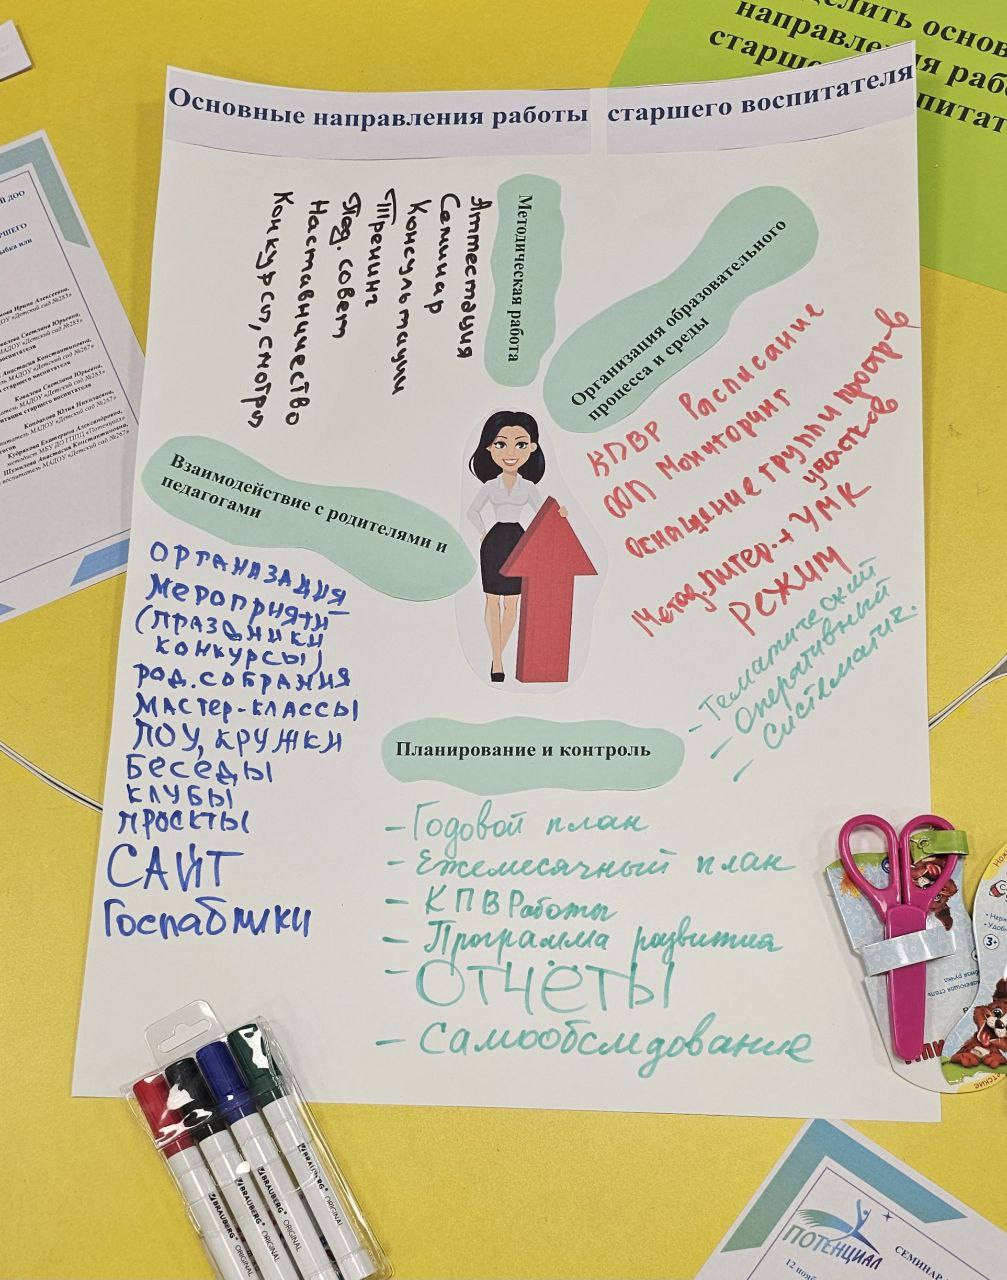 Основные направления работы старшего воспитателя
Методическая работа
Аттестация
Семинар
Консультации
Тренинг
Пед. совет
Наставничество
Конкурсы, смотры
Организация образовательного
процесса и среды
КПВР Расписание
ООП Мониторинг
Оснащение групп и простр-в
участков
Метод. литер. + УМК
РЕЖИМ
- Тематический
- Оперативный
- Систематич.
Взаимодействие с родителями и
педагогами
ОРГАНАЗАЦИЯ
МЕРОПРИЯТИ
(ПРАЗДНИКИ
КОНКУРСЫ)
РОД. СОБРАНИЯ
МАСТЕР-КЛАССЫ
ПОУ, КРУЖКИ
БЕСЕДЫ
КЛУБЫ
ПРОЕКТЫ
САЙТ
Госпаблики
Планирование и контроль
- Годовой план
- Ежемесячный план
- КПВРаботы
- Программа развития
- ОТЧЁТЫ
- Самообследование
BRAUBERG ORIGINAL
BRAUBERG ORIGINAL
BRAUBERG ORIGINAL
BRAUBERG ORIGINAL
ПОТЕНЦИАЛ
СЕМИНАР
3+